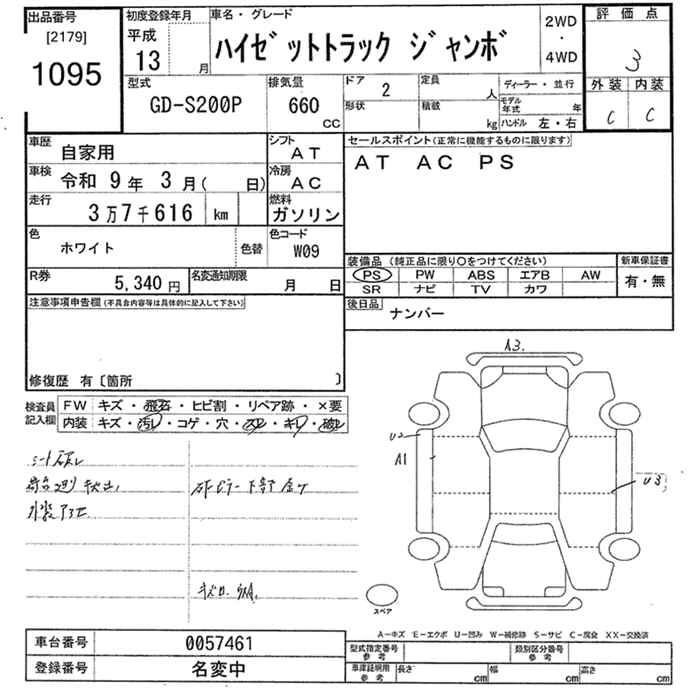 出品番号
[2179]
1095
初度登録年月
平成
13 月
車名・グレード
ハイゼットトラック ジャンボ
2WD
・
4WD
評価点
3
外装 内装
C C
型式
GD-S200P
排気量
660
CC
ドア
2
形状
定員
人
積載
kg
ディーラー・並行
モデル年式 年
ハンドル 左・右
車歴
自家用
シフト
AT
車検
令和 9年 3月( 日)
冷房
AC
走行
3万7千616 km
燃料
ガソリン
色
ホワイト
色替
色コード
W09
R券
5,340 円
名変通知期限
月 日
セールスポイント(正常に機能するものに限ります)
AT AC PS
装備品 (純正品に限り○をつけてください)
PS PW ABS エアB AW
SR ナビ TV カワ
新車保証書
有・無
後日品
ナンバー
注意事項申告欄(不具合内容等は具体的に記入して下さい)
修復歴 有〔箇所 〕
検査員
記入欄
FW キズ・飛石・ヒビ割・リペア跡・×要
内装 キズ・汚レ・コゲ・穴・スレ・キレ・破レ
A3
U2
A1
U3
スペア
A-キズ E-エクボ U-凹み W-補修跡 S-サビ C-腐食 XX-交換済
車台番号
0057461
登録番号
名変中
型式指定番号
参考
類別区分番号
参考
車庫証明用
参考
長さ cm
幅 cm
高さ cm